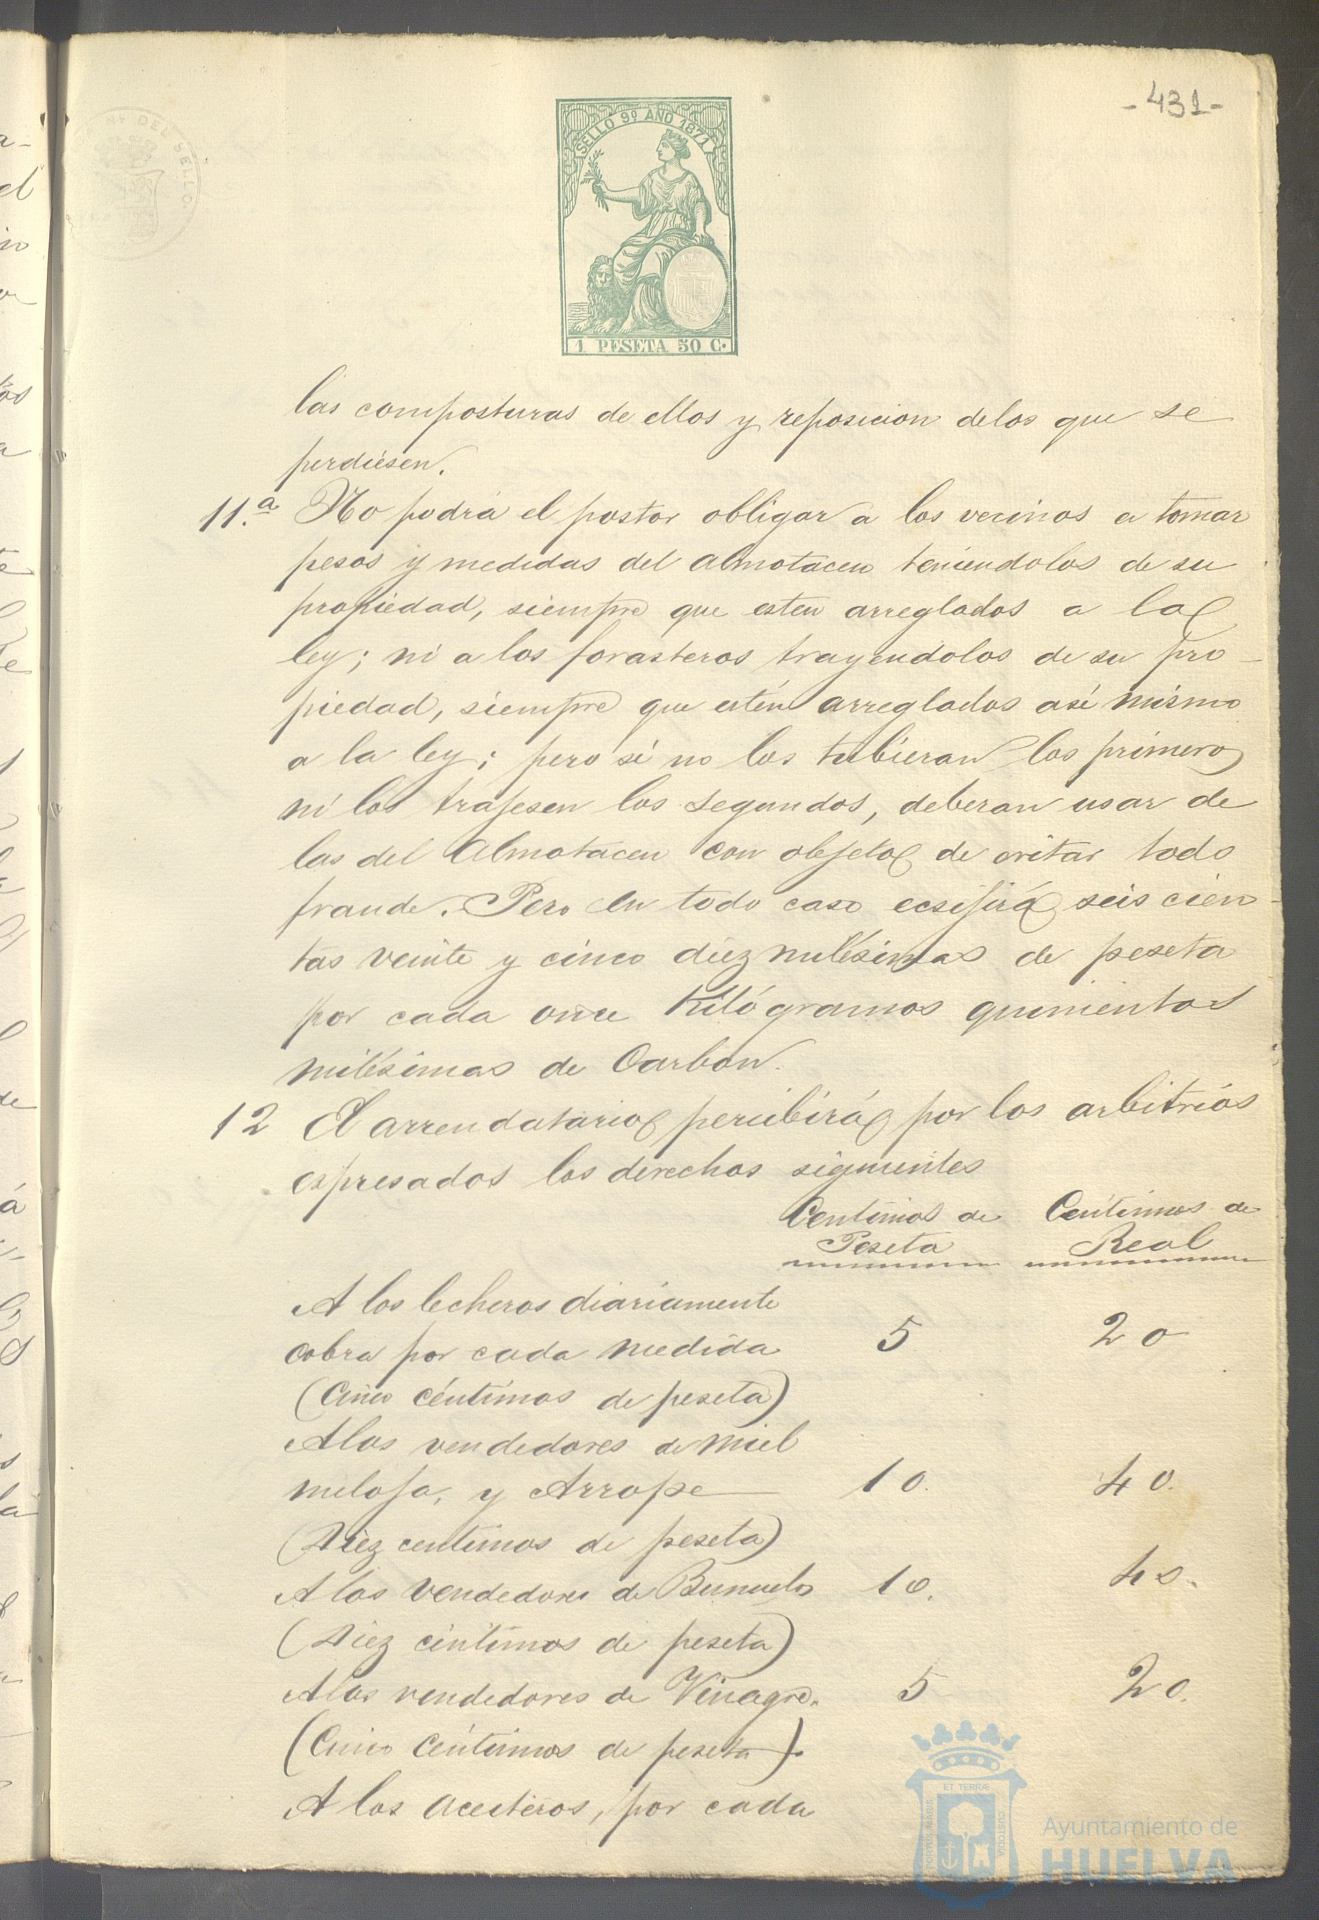 -431-
SELLO 9º AÑO 1871
1 PESETA 50 C.
las composturas de ellos y reposicion delos que se
perdiesen.
11.ª No podrá el postor obligar a los vecinos a tomar
pesos y medidas del Almotacen teniendolos de su
propiedad, siempre que esten arreglados a la
ley; ni a los forasteros trayendolos de su pro-
piedad, siempre que estén arreglados asi mismo
a la ley; pero si no los tubieran los primeros
ni los trajesen los segundos, deberan usar de
las del Almotacen con objeto de evitar todo
fraude. Pero en todo caso ecsijirá seis cien-
tas veinte y cinco diez milésimas de peseta
por cada once Kilógramos quinientos
milésimas de Carbon.
12 El arrendatario percibirá por los arbitrios
espresados los derechos siguientes
Centimos de Peseta Centimos de Real
A los lecheros diariamente
cobra por cada medida 5 20
(Cinco céntimos de peseta)
Alos vendedores de miel
meloja, y Arrope 10. 40.
(Diez centimos de peseta)
A los vendedores de Bunuelos 10. 40.
(Diez centimos de peseta)
Alos vendedores de Vinagre. 5 20.
(Cinco centimos de peseta).
A los aceiteros, por cada
ET TERRÆ
CUSTODIA
Ayuntamiento de
HUELVA